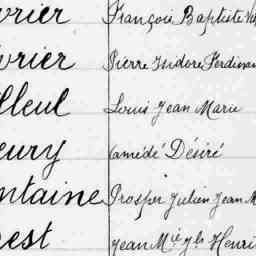 vrier François Baptiste
vrier Pierre Isidore Ferdinan
lleul Louis Jean Marie
eury Camédé Désiré
ntaine Prosper Julien Jean M
rest Jean Mie Henri